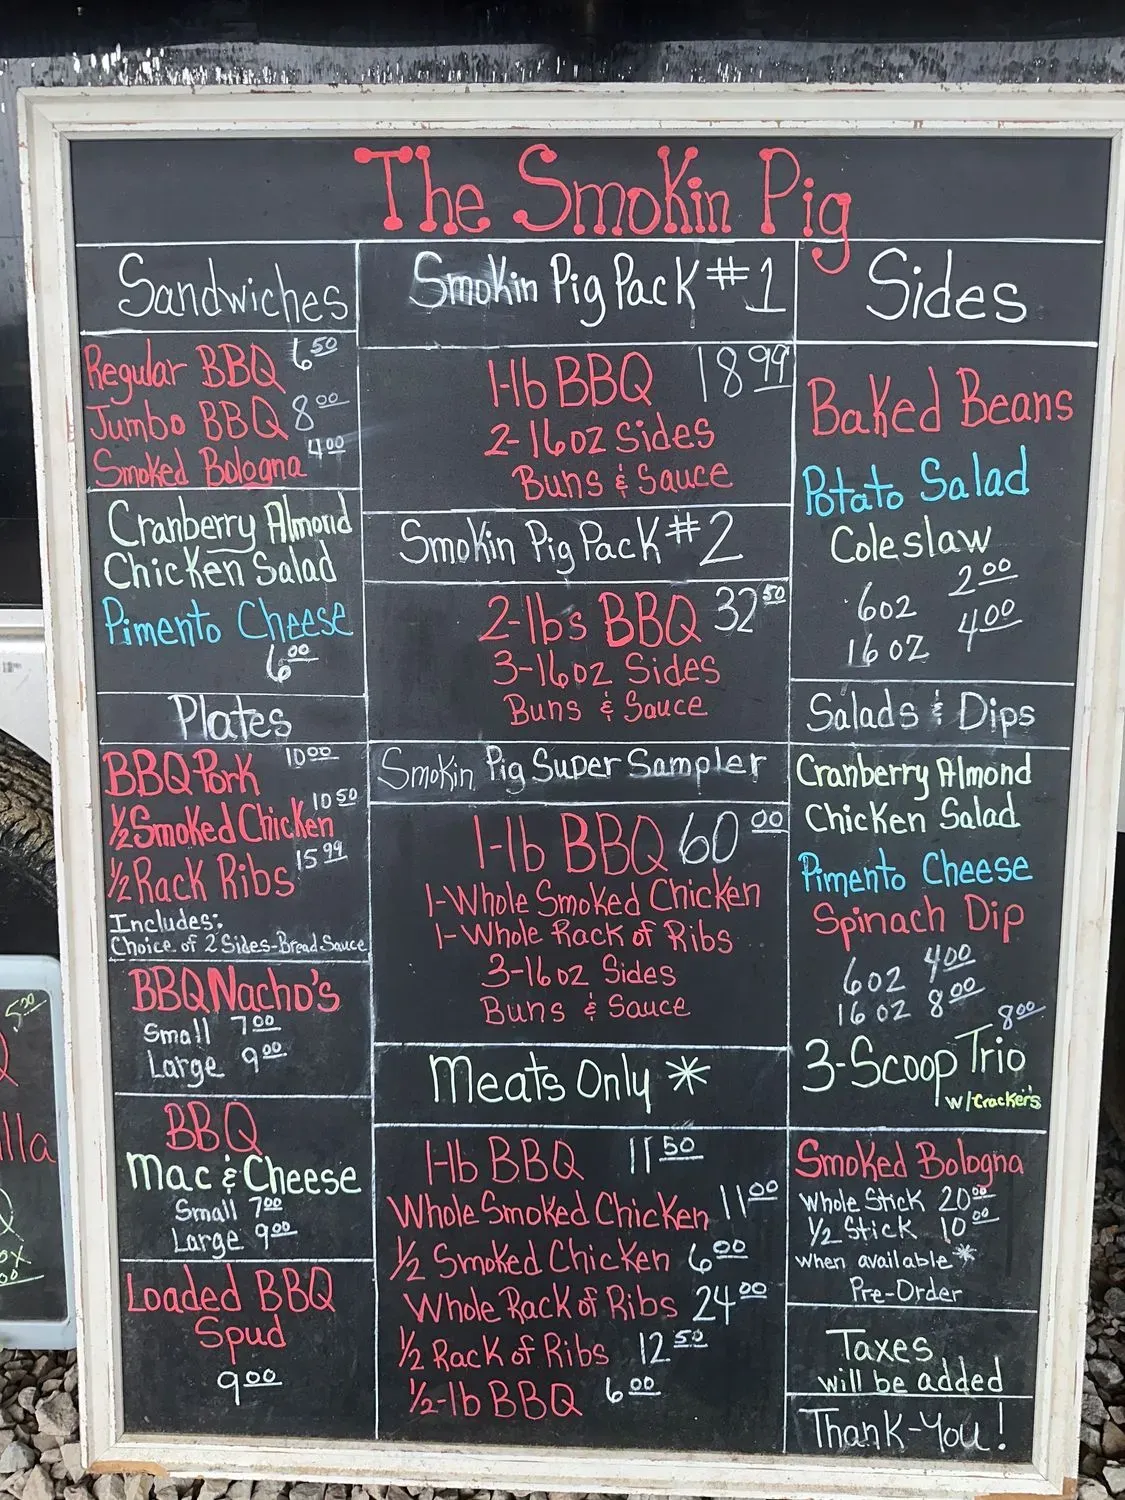 The Smokin Pig
Sandwiches
Regular BBQ 6 50
Jumbo BBQ 8 00
Smoked Bologna 4 00
Cranberry Almond
Chicken Salad
Pimento Cheese
6 00
Plates
BBQ Pork 10 00
1/2 Smoked Chicken 10 50
1/2 Rack Ribs 15 99
Includes:
Choice of 2 Sides-Bread-Sauce
BBQ Nacho's
Small 7 00
Large 9 00
BBQ
Mac & Cheese
Small 7 00
Large 9 00
Loaded BBQ
Spud
9 00
Smokin Pig Pack #1
1-lb BBQ 18 99
2-16oz Sides
Buns & Sauce
Smokin Pig Pack #2
2-lbs BBQ 32 50
3-16oz Sides
Buns & Sauce
Smokin Pig Super Sampler
1-lb BBQ 60 00
1-Whole Smoked Chicken
1-Whole Rack of Ribs
3-16oz Sides
Buns & Sauce
Meats Only *
1-lb BBQ 11 50
Whole Smoked Chicken 11 00
1/2 Smoked Chicken 6 00
Whole Rack of Ribs 24 00
1/2 Rack of Ribs 12 50
1/2-lb BBQ 6 00
Sides
Baked Beans
Potato Salad
Coleslaw
6oz 2 00
16oz 4 00
Salads & Dips
Cranberry Almond
Chicken Salad
Pimento Cheese
Spinach Dip
6oz 4 00
16oz 8 00
3-Scoop Trio 8 00
w/Cracker's
Smoked Bologna
Whole Stick 20 00
1/2 Stick 10 00
When available *
Pre-Order
Taxes
will be added
Thank-You!
5 00